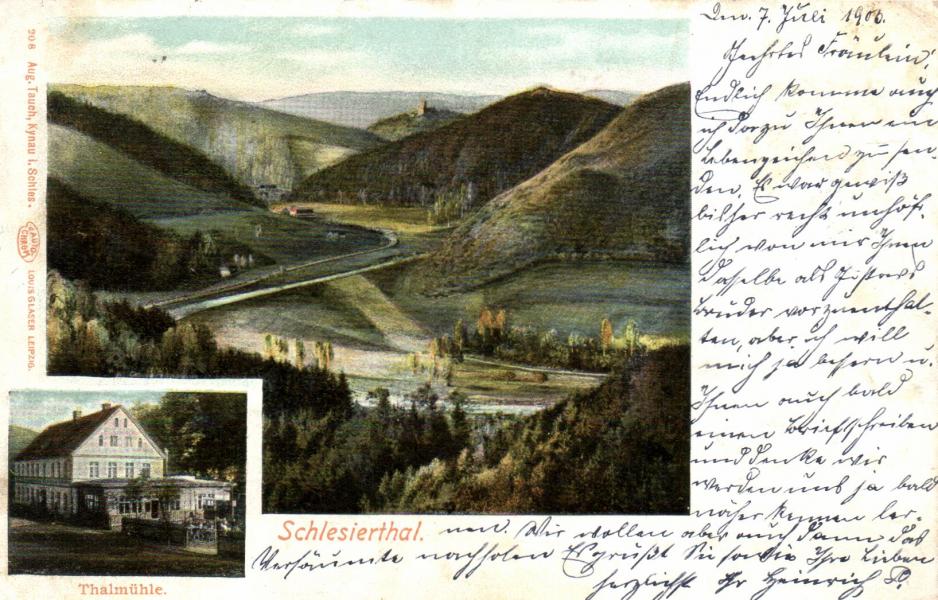 208 Aug. Tauch, Kynau i. Schles.
LOUIS GLASER LEIPZIG.
Den 7. Juli 1900.
Geehrtes Fräulein!
Endlich komme auch
ich dazu Ihnen ein
Lebenzeichen zu sen-
den. Es war gewiß
bisher recht unhöf-
lich von mir Ihnen
dasselbe als Gustavs
Bruder vorzuenthal-
ten, aber ich will
mich ja bessern u.
Ihnen auch bald
einen Brief schreiben
und denke wir
werden uns ja bald
näher kennen ler-
nen. Wir wollen aber auch dann das
Versäumte nachholen Es grüßt Sie sowie Ihre Lieben
herzlichst Ihr Heinrich P.
Schlesierthal.
Thalmühle.